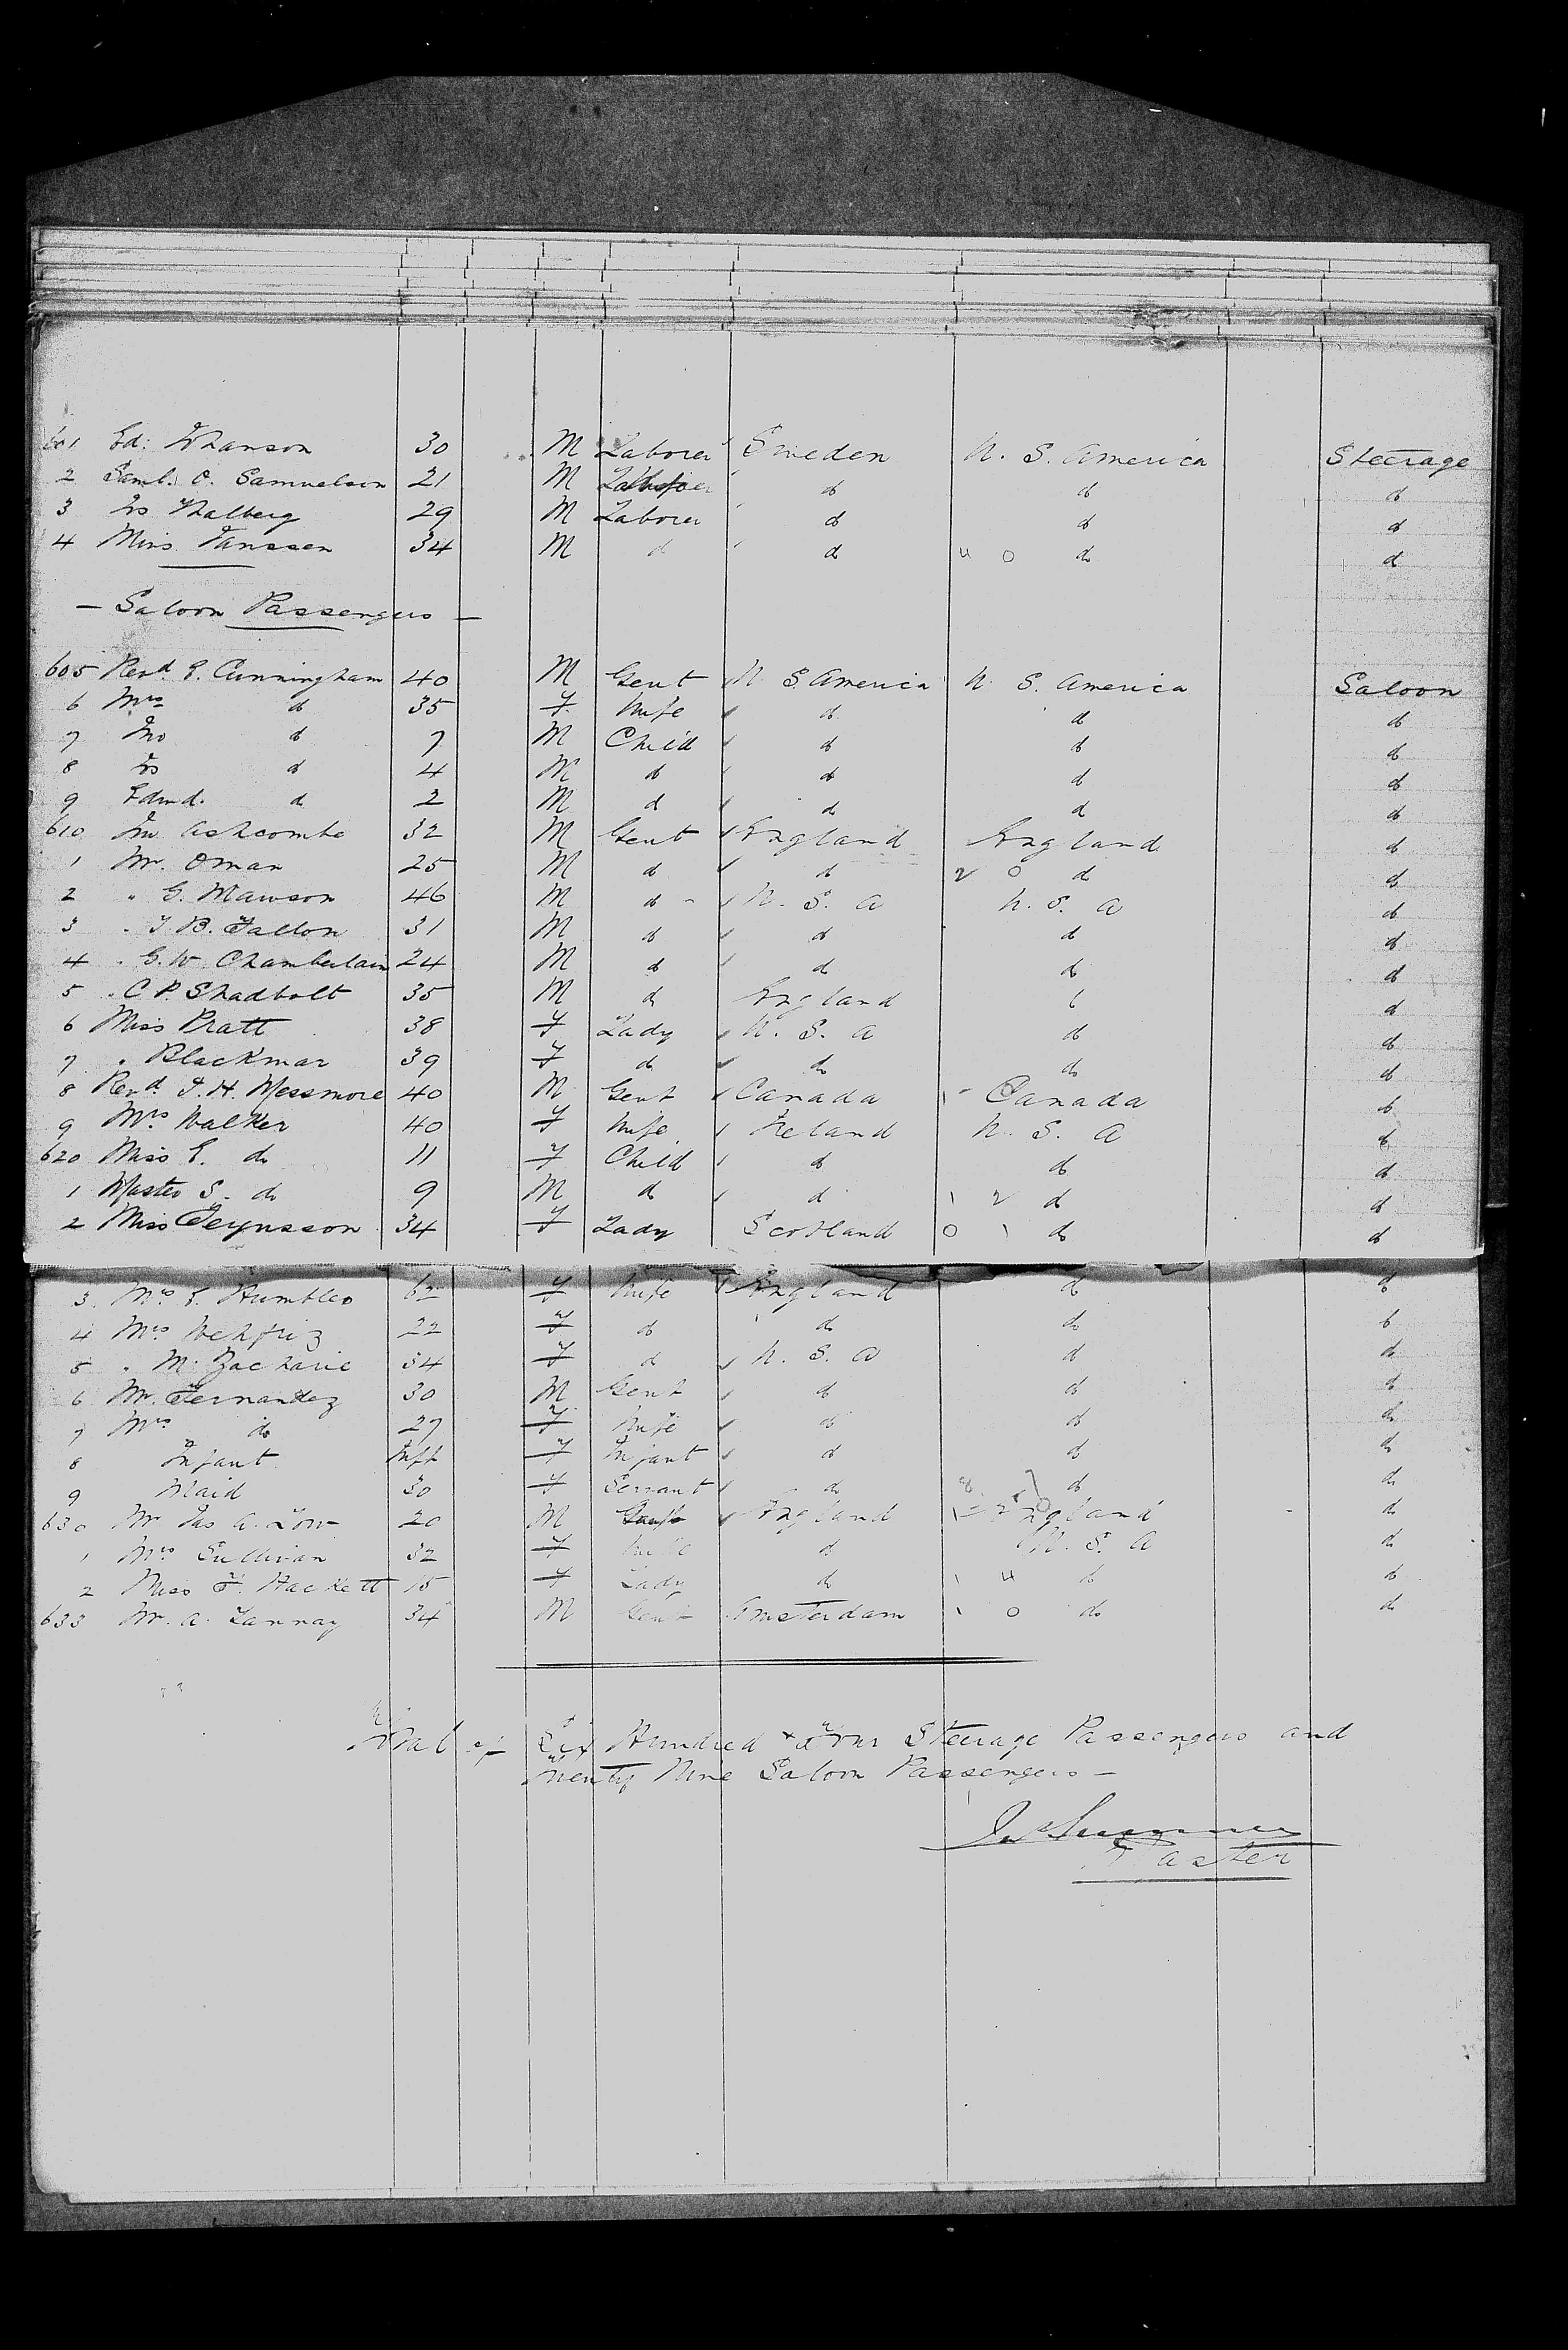 601 Ed: Johanson 30 M Laborer Sweden U. S. America Steerage
2 Saml. O. Samuelson 21 M Laborer do do do
3 Js Thalberg 29 M Laborer do do do
4 Miss Janssen 34 M d do 4 0 do do
— Saloon Passengers —
605 Revd. E. Cunningham 40 M Gent U. S. America U. S. America Saloon
6 Mrs do 35 F Wife do do do
7 Jno do 7 M Child do do do
8 Js do 4 M do do do do
9 Edmd. do 2 M do do do do
610 Jno Ashcombe 32 M Gent England England do
1 Mr. Oman 25 M do do 2 0 do do
2 " G. Mawson 46 M do U. S. A U. S. A do
3 " T. B. Fallon 31 M do do do do
4 " G. W. Chamberlain 24 M do do do do
5 " C. P. Shadbolt 35 M do England do
6 Miss Pratt 38 F Lady U. S. A do do
7 " Blackmar 39 F do do do do
8 Revd J. H. Messmore 40 M Gent Canada 1 Canada do
9 Mrs. Walker 40 F Wife Ireland U. S. A do
620 Miss E. do 11 F Child do do do
1 Master S. do 9 M do do 1 2 do do
2 Miss Feynsson 34 F Lady Scotland 0 1 do do
3. Mrs E. Humbles F Wife England do do
4 Mrs 22 F do do do do
5 " M. Zacharie 34 F do U. S. A do do
6 Mr. Fernandez 30 M Gent do do do
7 Mrs do 27 F Wife do do do
8 Infant Inft F Infant do do do
9 Maid 30 F Servant do 8 7 do do
630 Mr Jas A. Low 20 M Gent England England do
1 Mrs Sullivan 32 F Wife do U. S. A do
2 Miss F. Hackett 15 F Lady do 1 4 do do
633 Mr. A. Lannay 34 M Gent Amsterdam 1 0 do do
Total of Six Hundred & Four Steerage Passengers and
Twenty Nine Saloon Passengers —
Master